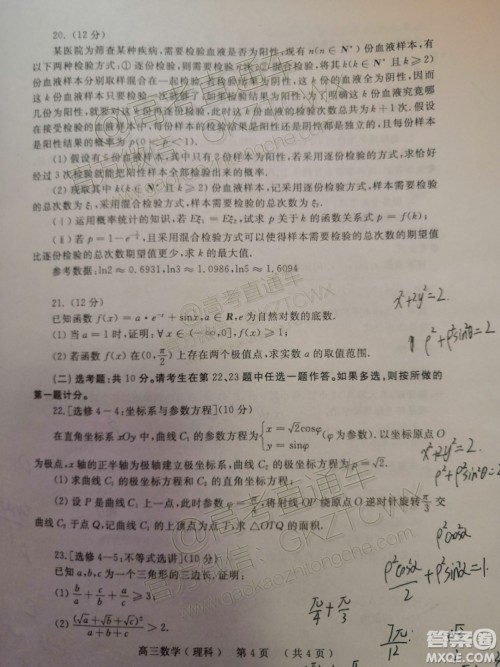 20.（12分）
某医院为筛查某种疾病，需要检验血液是否为阳性，现有 n(n∈N*) 份血液样本，有
以下两种检验方式：①逐份检验，则需要检验n次；②混合检验，将其 k(k∈N* 且 k≥2)
份血液样本分别取样混合在一起检验，若检验结果为阴性，这k份的血液全为阴性，因而
这k份血液样本只要检验一次就够了；如果检验结果为阳性，为了明确这k份血液究竟哪
几份为阳性，就要对这k份再逐份检验，此时这k份血液的检验次数总共为k+1次。假设
在接受检验的血液样本中，每份样本的检验结果是阳性还是阴性都是独立的，且每份样本
是阳性结果的概率为 p(0<p<1).
(1) 假设有5份血液样本，其中只有2份样本为阳性，若采用逐份检验的方式，求恰好
经过3次检验就能把阳性样本全部检验出来的概率.
(2) 现取其中 k(k∈N* 且 k≥2) 份血液样本，记采用逐份检验方式，样本需要检验
的总次数为ξ₁，采用混合检验方式，样本需要检验的总次数为ξ₂.
(ⅰ) 运用概率统计的知识，若 Eξ₁=Eξ₂，试求p关于k的函数关系式 p=f(k)；
(ⅱ) 若 ，且采用混合检验方式可以使得样本需要检验的总次数的期望值
比逐份检验的总次数期望值更少，求k的最大值.
参考数据：ln2≈0.6931，ln3≈1.0986，ln5≈1.6094
21.（12分）
已知函数 f(x)=a·e⁻ˣ+sinx，a∈R，e为自然对数的底数.
(1) 当a=1时，证明：∀x∈(-∞,0]，f(x)≥1；
(2) 若函数f(x)在(0,π/2)上存在两个极值点，求实数a的取值范围.
(二) 选考题：共10分。请考生在第22、23题中任选一题作答。如果多选，则按所做的
第一题计分。
22.[选修4-4：坐标系与参数方程]（10分）
在直角坐标系xOy中，曲线C₁的参数方程为{x=√2cosφ
y=sinφ (φ为参数). 以坐标原点O
为极点，x轴的正半轴为极轴建立极坐标系，曲线C₂的极坐标方程为ρ=√2.
(1) 求曲线C₁的极坐标方程和C₂的直角坐标方程；
(2) 设P是曲线C₁上一点，此时参数φ=π/4，将射线OP绕原点O逆时针旋转π/3交
曲线C₂于点Q，记曲线C₁的上顶点为点T，求△OTQ的面积.
23.[选修4-5：不等式选讲]（10分）
已知a,b,c为一个三角形的三边长. 证明：
(1) b/a+c/b+a/c≥3；
(2) (√a+√b+√c)²/(a+b+c)>2.
高三数学（理科） 第4页 （共4页）
x²+2y²=2
ρ²+ρ²sin²θ=2
x²+2y²=2.
ρ²+ρ²sin²θ=2
ρ²cos²α
ρ²cos²α/2+ρ²sin²α=1.
π/4+π/3
7π/12:
@高考直通车
GKZTCWX
答案圈
www.daanquan.com